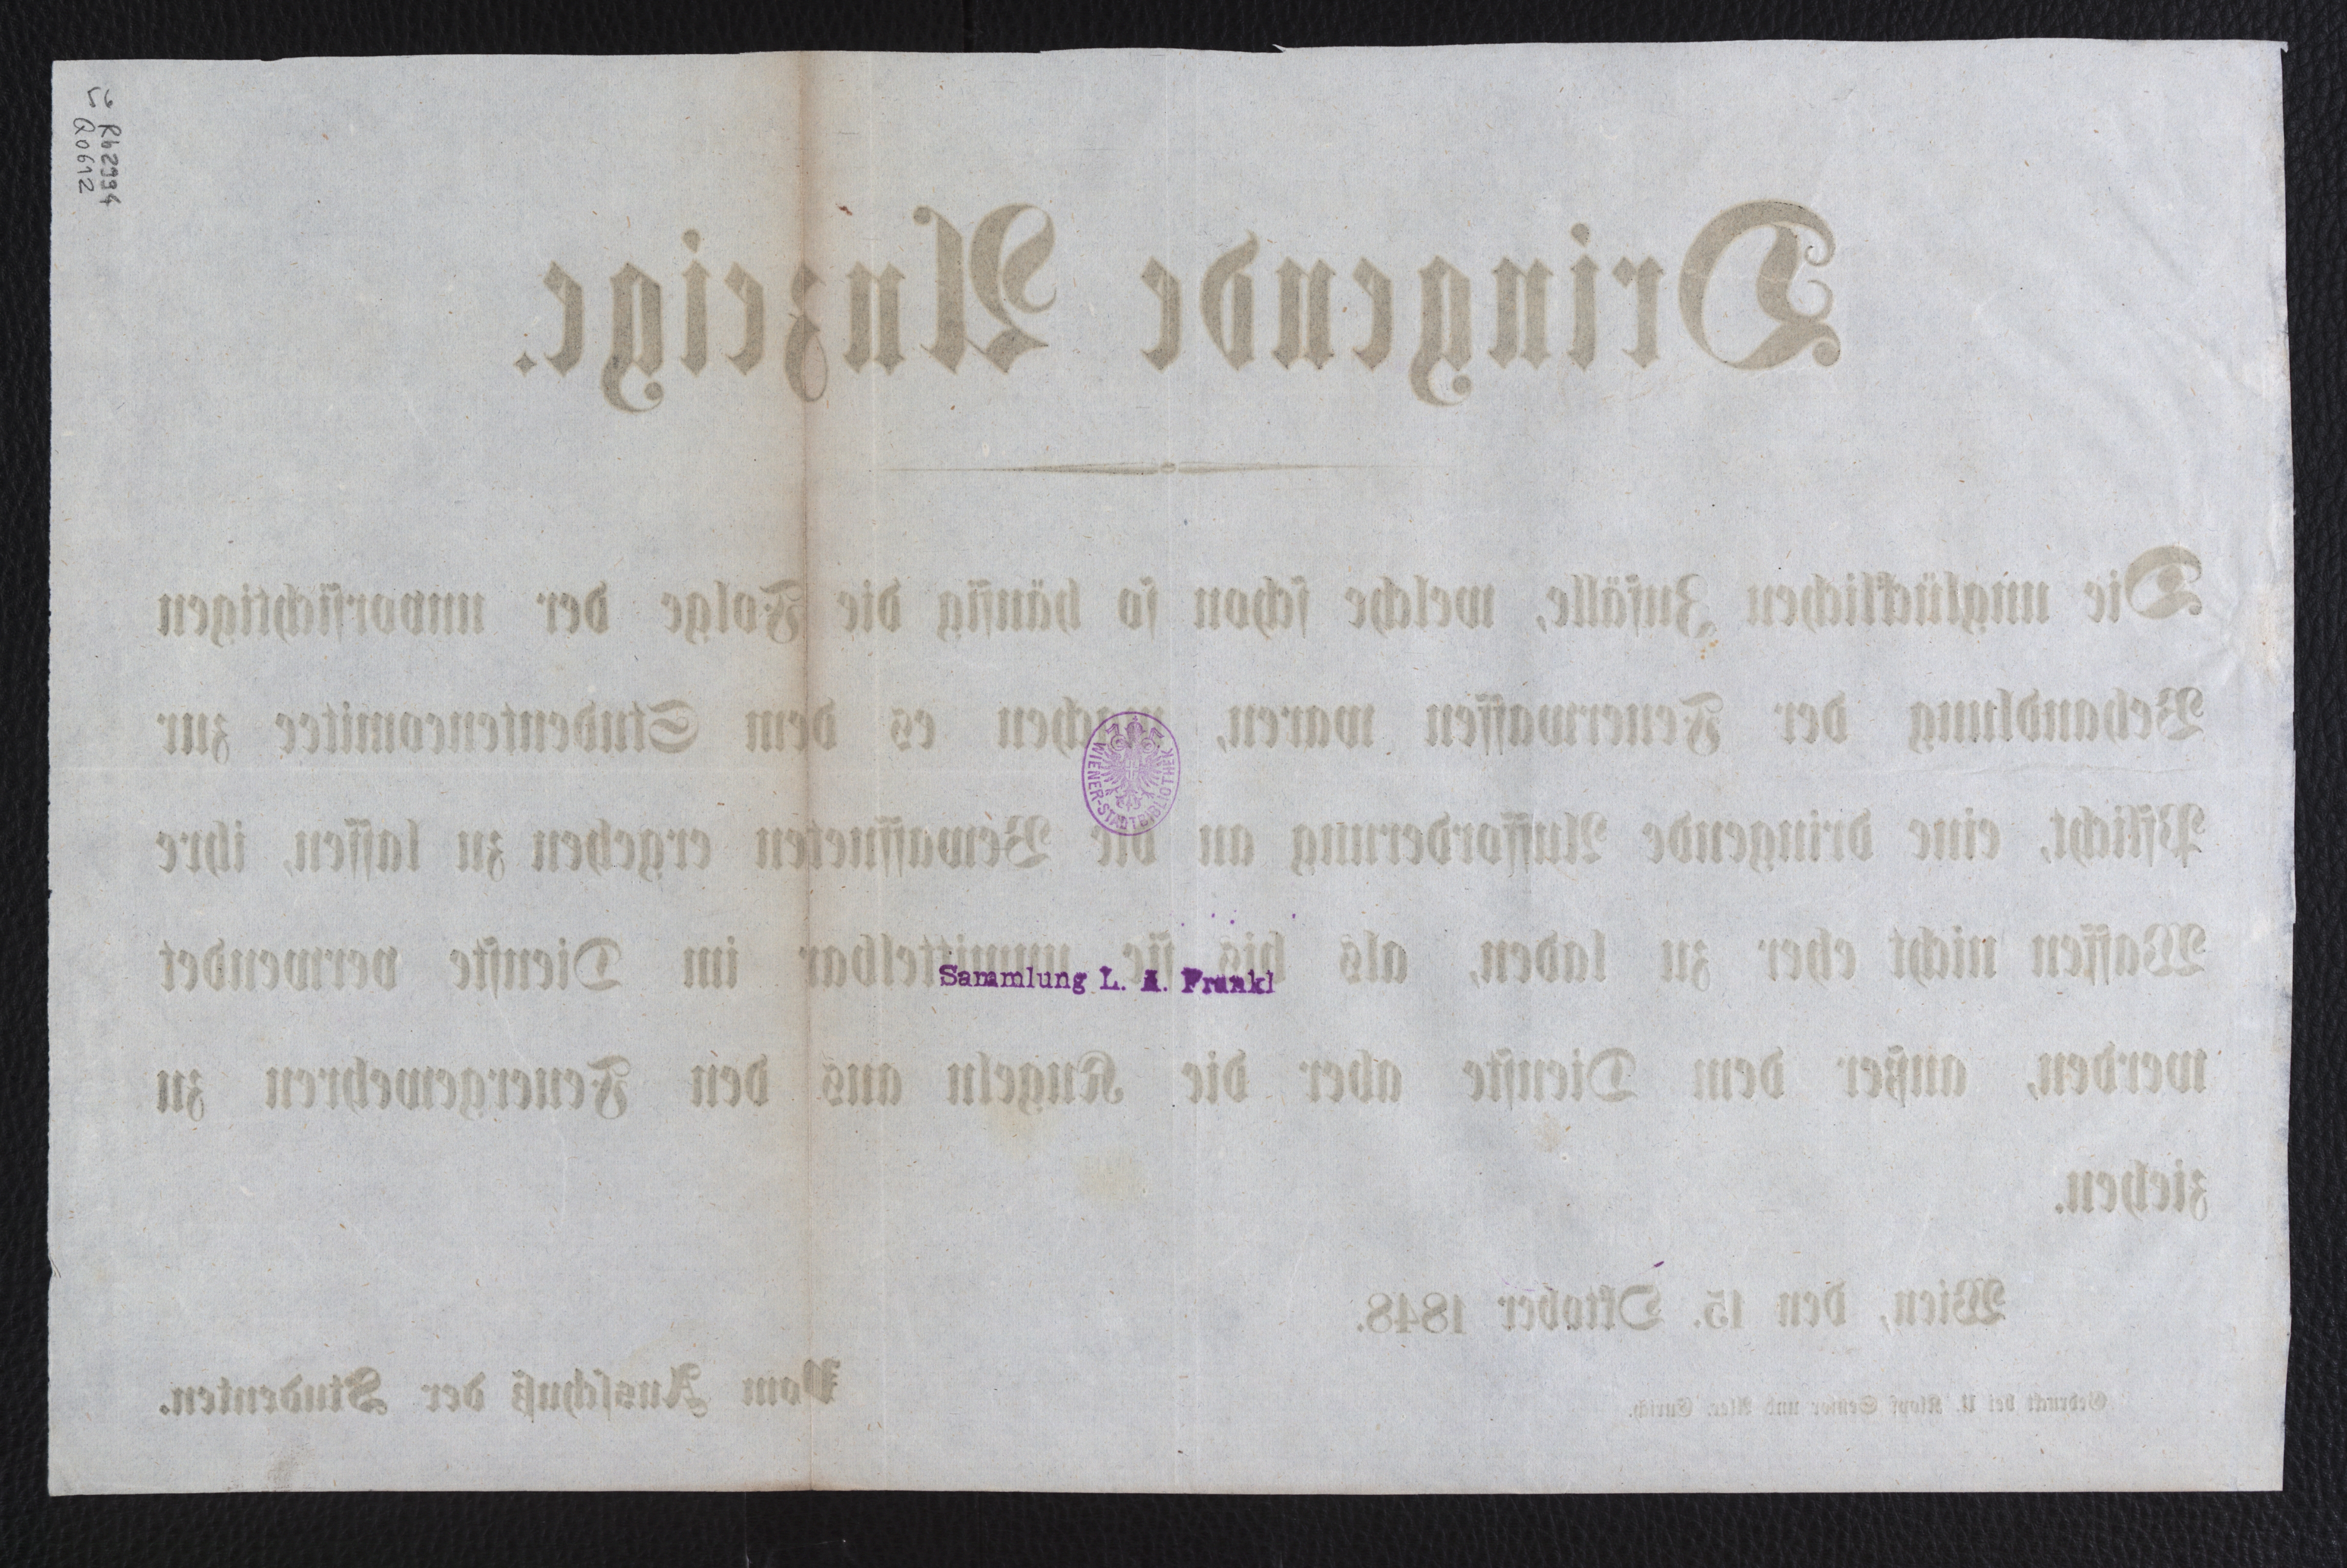 L Rh 2994
Q0612
Dringende Anzeige.
Die unglücklichen Zufälle, welche schon so häufig die Folge der unvorsichtigen
Behandlung der Feuerwaffen waren, machen es dem Studentencomitee zur
Pflicht, eine dringende Aufforderung an die Bewaffneten ergehen zu lassen, ihre
Waffen nicht eher zu laden, als bis sie unmittelbar im Dienste verwendet
werden, außer dem Dienste aber die Kugeln aus den Feuergewehren zu
ziehen.
WIENER-STADTBIBLIOTHEK
Sammlung L. A. Frankl
Wien, den 15. Oktober 1848.
Vom Ausschuß der Studenten.
Gedruckt bei U. Klopf Senior und Alex. Eurich.